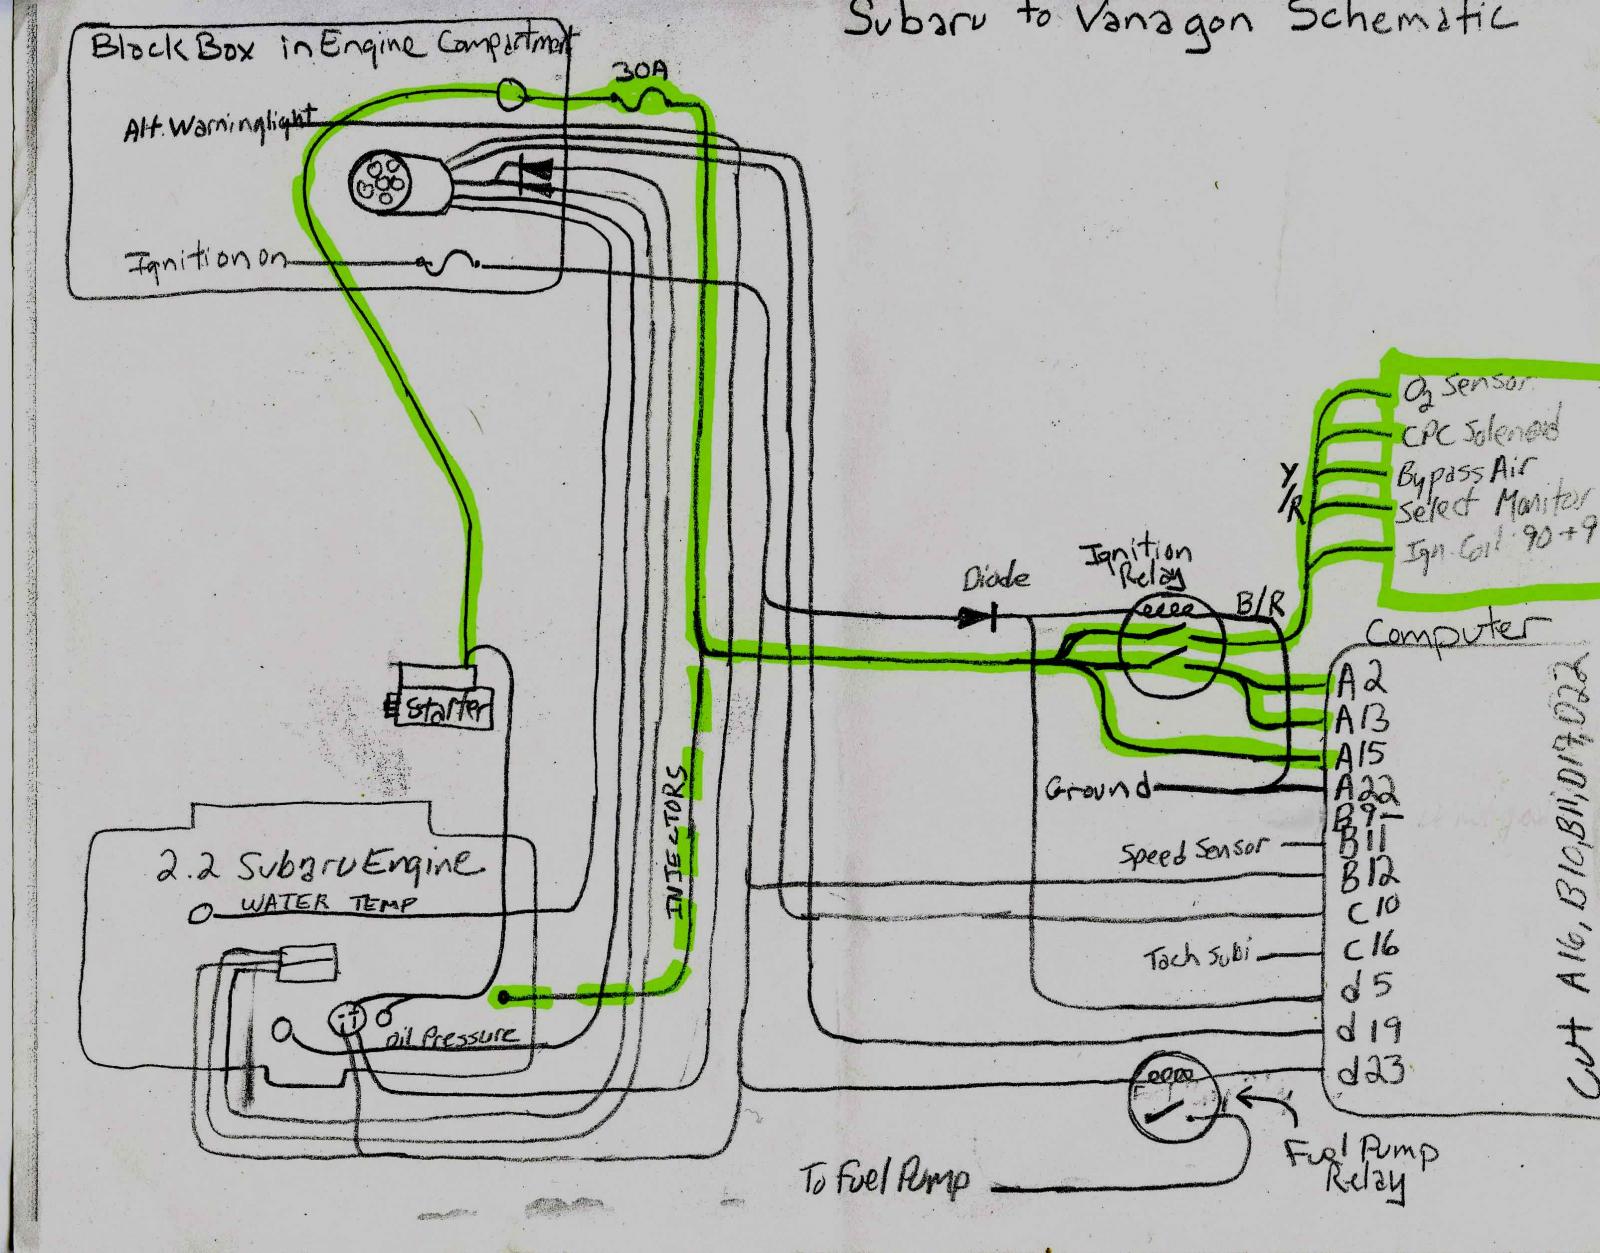 Subaru to Vanagon Schematic
Black Box in Engine Compartment
30A
Alt. Warninglight
Ignition on
O2 Sensor
CPC Solenoid
Bypass Air
Y/R
Select Monitor
Ign. Coil 90+9
Ignition
Relay
Diode
B/R
Computer
A2
Starter
A13
A15
Ground
A22
B9
B11
Speed Sensor
INJECTORS
2.2 Subaru Engine
B12
WATER TEMP
C10
Tach Subi
C16
d5
Oil Pressure
d19
d23
Fuel Pump
Relay
To Fuel Pump
Cut A16, B10, B11, D17, D22